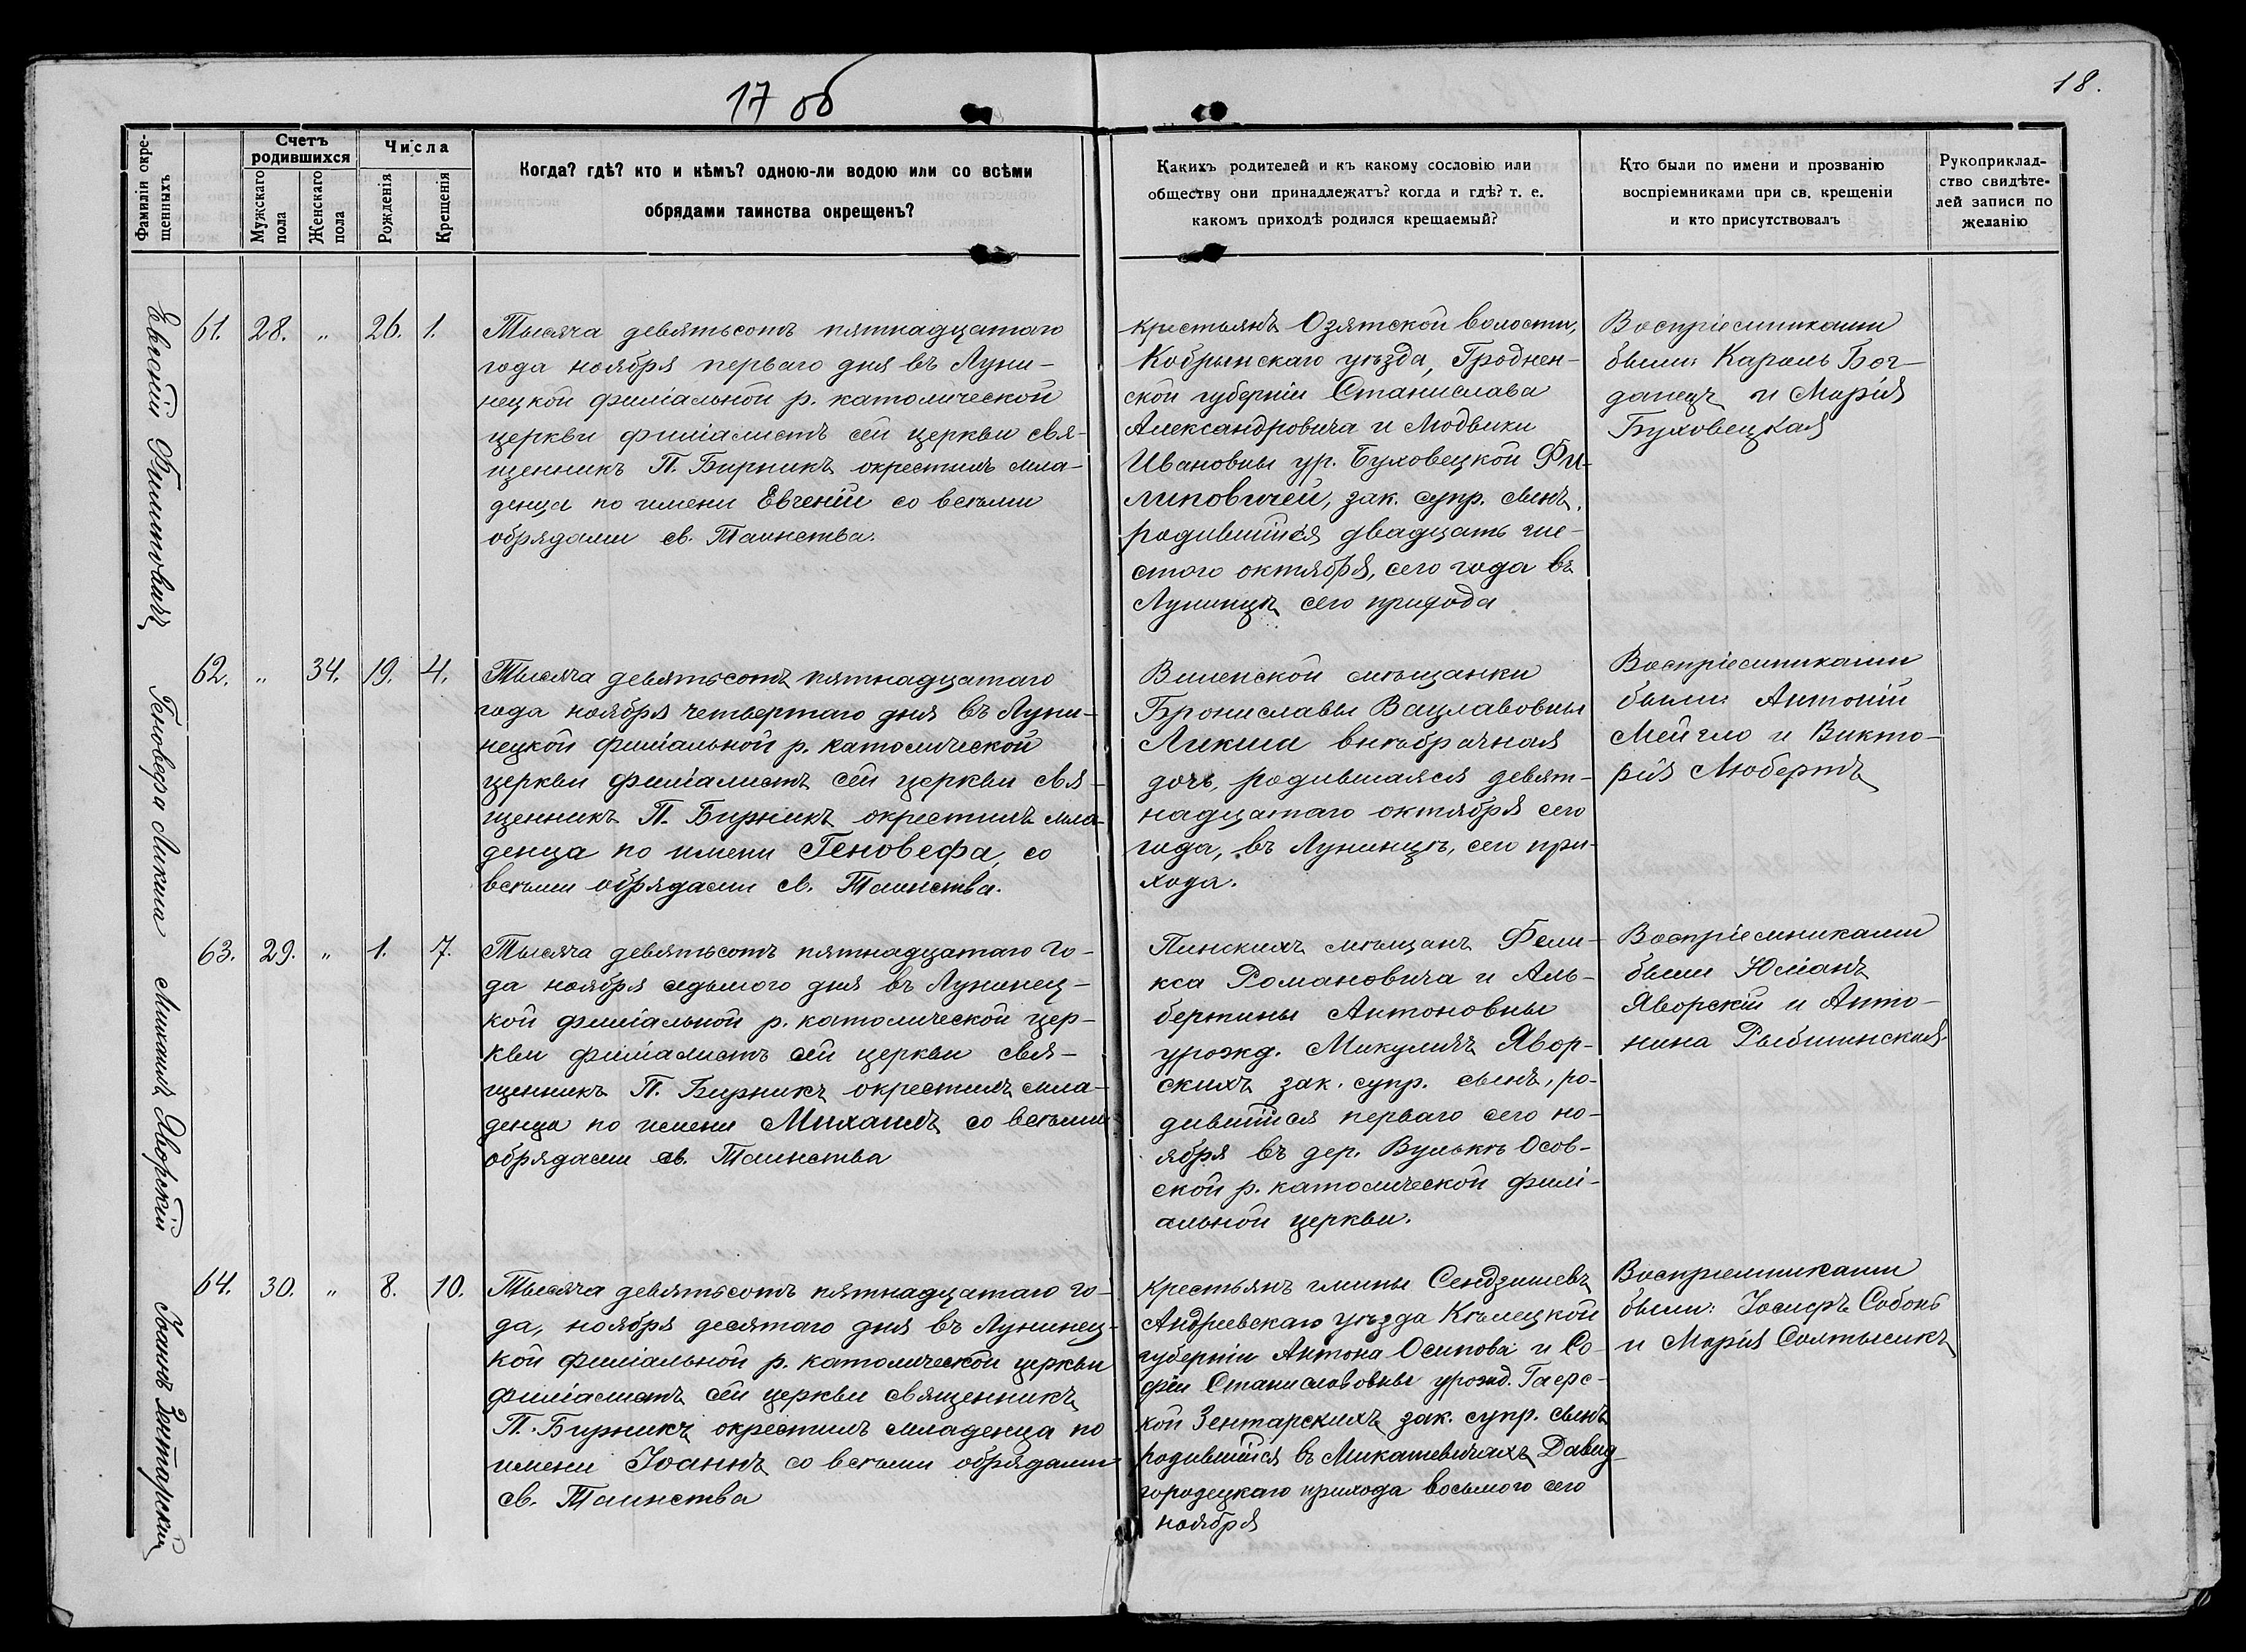 17 об
18.
Фамиліи окре-
щенныхъ
Счетъ
родившихся
Мужскаго
пола
Женскаго
пола
Числа
Рожденія
Крещенія
Когда? гдѣ? кто и кѣмъ? одною-ли водою или со всѣми
обрядами таинства окрещенъ?
Какихъ родителей и къ какому сословію или
обществу они принадлежатъ? когда и гдѣ? т. е.
какомъ приходѣ родился крещаемый?
Кто были по имени и прозванію
воспріемниками при св. крещеніи
и кто присутствовалъ
Рукоприклад-
ство свидѣте-
лей записи по
желанію
Евгеній Филиповичъ
61. 28. „ 26. 1.
Тысяча девятьсотъ пятнадцатаго
года ноября перваго дня въ Луни-
нецкой филіальной р. католической
церкви филіалистъ сей церкви свя-
щенникъ П. Бирникъ окрестилъ мла-
денца по имени Евгеній со всѣми
обрядами св. Таинства.
крестьянъ Озятской волости,
Кобрынскаго уѣзда, Гроднен-
ской губерніи Станислава
Александровича и Людвики
Ивановны ур. Буховецкой Фи-
липовичей, зак. супр. сынъ,
родившійся двадцать ше-
стого октября, сего года въ
Лунинцѣ сего прихода
Воспріемниками
были: Кароль Бог-
данецъ и Марія
Буховецкая
Геновефа Ликша
62. „ 34. 19. 4.
Тысяча девятьсотъ пятнадцатаго
года ноября четвертаго дня въ Луни-
нецкой филіальной р. католической
церкви филіалистъ сей церкви свя-
щенникъ П. Бирникъ окрестилъ мла-
денца по имени Геновефа, со
всѣми обрядами св. Таинства.
Виленской мѣщанки
Брониславы Вацлавовны
Ликша внѣбрачная
дочь, родившаяся девят-
надцатаго октября сего
года, въ Лунинцѣ, сего при-
хода.
Воспріемниками
были: Антоній
Мейгло и Викто-
рія Люберть
Михаилъ Яворскій
63. 29. „ 1. 7.
Тысяча девятьсотъ пятнадцатаго го-
да ноября седьмого дня въ Лунинец-
кой филіальной р. католической цер-
кви филіалистъ сей церкви свя-
щенникъ П. Бирникъ окрестилъ мла-
денца по имени Михаилъ со всѣми
обрядами св. Таинства
Пинскихъ мѣщанъ Фели-
кса Романовича и Аль-
бертины Антоновны
урожд. Микуличъ Явор-
скихъ зак. супр. сынъ, ро-
дившійся перваго сего но-
ября въ дер. Вулькѣ Осов-
ской р. католической филі-
альной церкви.
Воспріемниками
были Юліанъ
Яворскій и Анто-
нина Рыбшинская.
Іоаннъ Зентарскій
64. 30. „ 8. 10.
Тысяча девятьсотъ пятнадцатаго го-
да, ноября десятаго дня въ Лунинец-
кой филіальной р. католической церкви
филіалистъ сей церкви священникъ
П. Бирникъ окрестилъ младенца по
имени Іоаннъ со всѣми обрядами
св. Таинства
крестьянъ гмины Сендзишевъ
Андреевскаго уѣзда Кѣлецкой
губерніи Антона Осипова и Со-
фіи Станиславовны урожд. Гаерс-
кой Зентарскихъ зак. супр. сынъ
родившійся въ Микашевичахъ Давид-
городецкаго прихода восьмого сего
ноября
Воспріемниками
были: Іосифъ Собонь
и Марія Солтысикъ